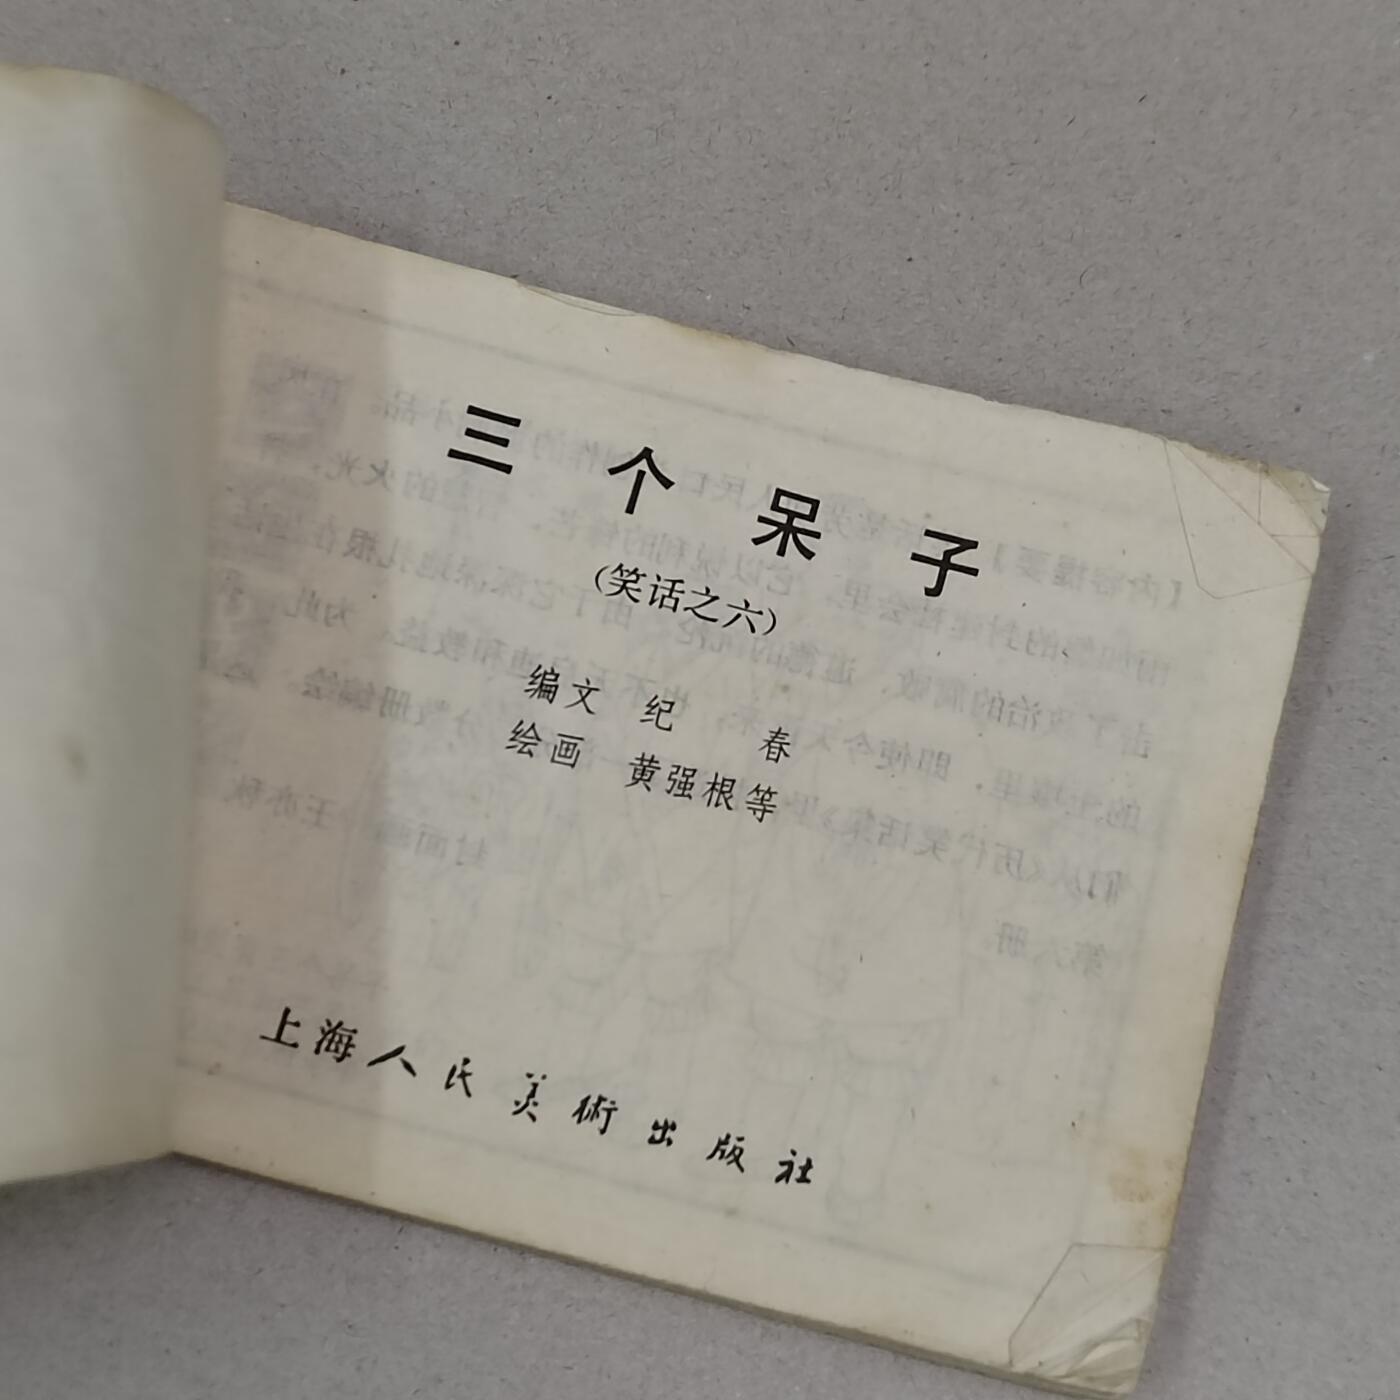 三个呆子
(笑话之六)
编文 纪 春
绘画 黄强根等
上海人民美術出版社